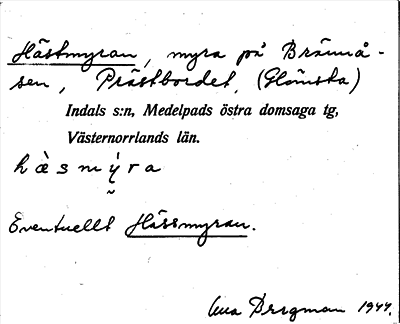 Hästmyran, myra på Brännå-
sen, Prästbordet, (Glömsta)
Indals s:n, Medelpads östra domsaga tg,
Västernorrlands län.
hàsmỳra
Eventuellt Hässmyran.
Bergman 1944.